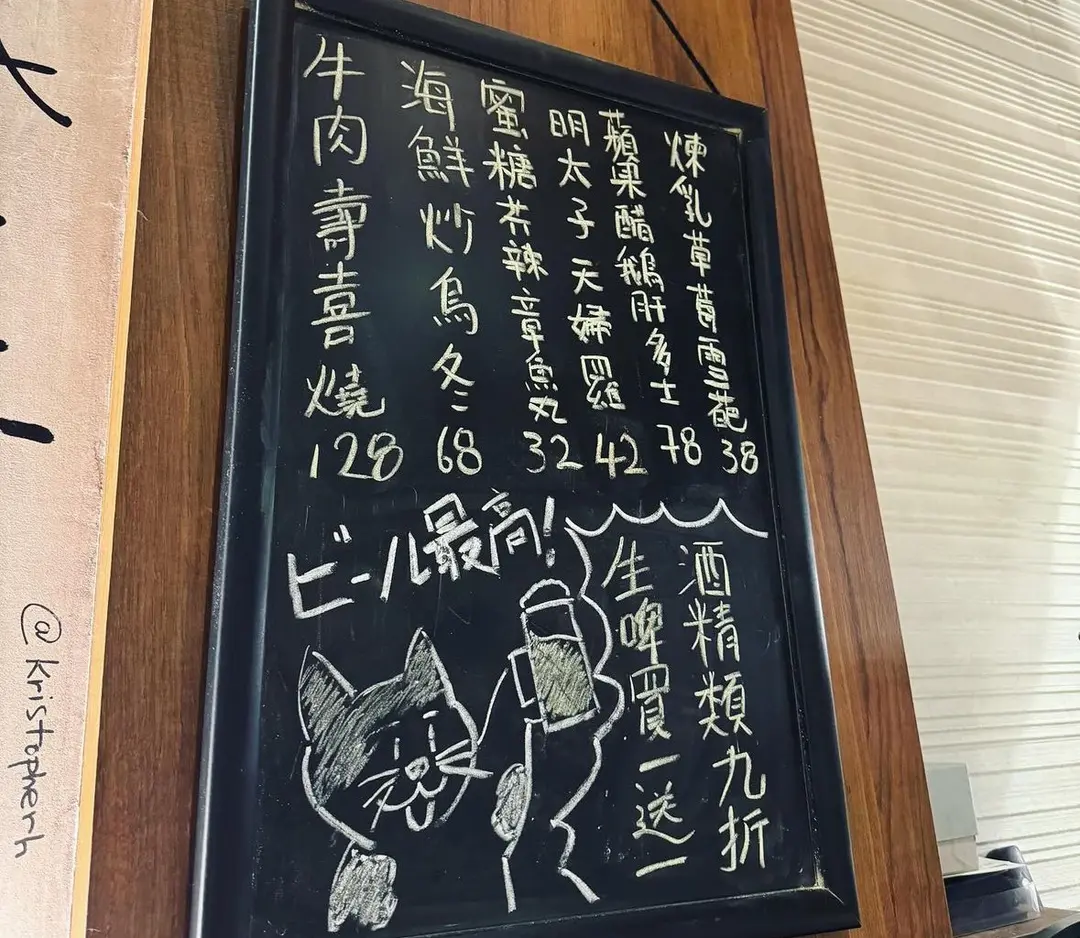 煉乳草莓雪葩 38
蘋果醋鵝肝多士 78
明太子天婦羅 42
蜜糖芥辣章魚丸 32
海鮮炒烏冬 68
牛肉壽喜燒 128
ビール最高!
酒精類九折
生啤買一送一
@kristopherh